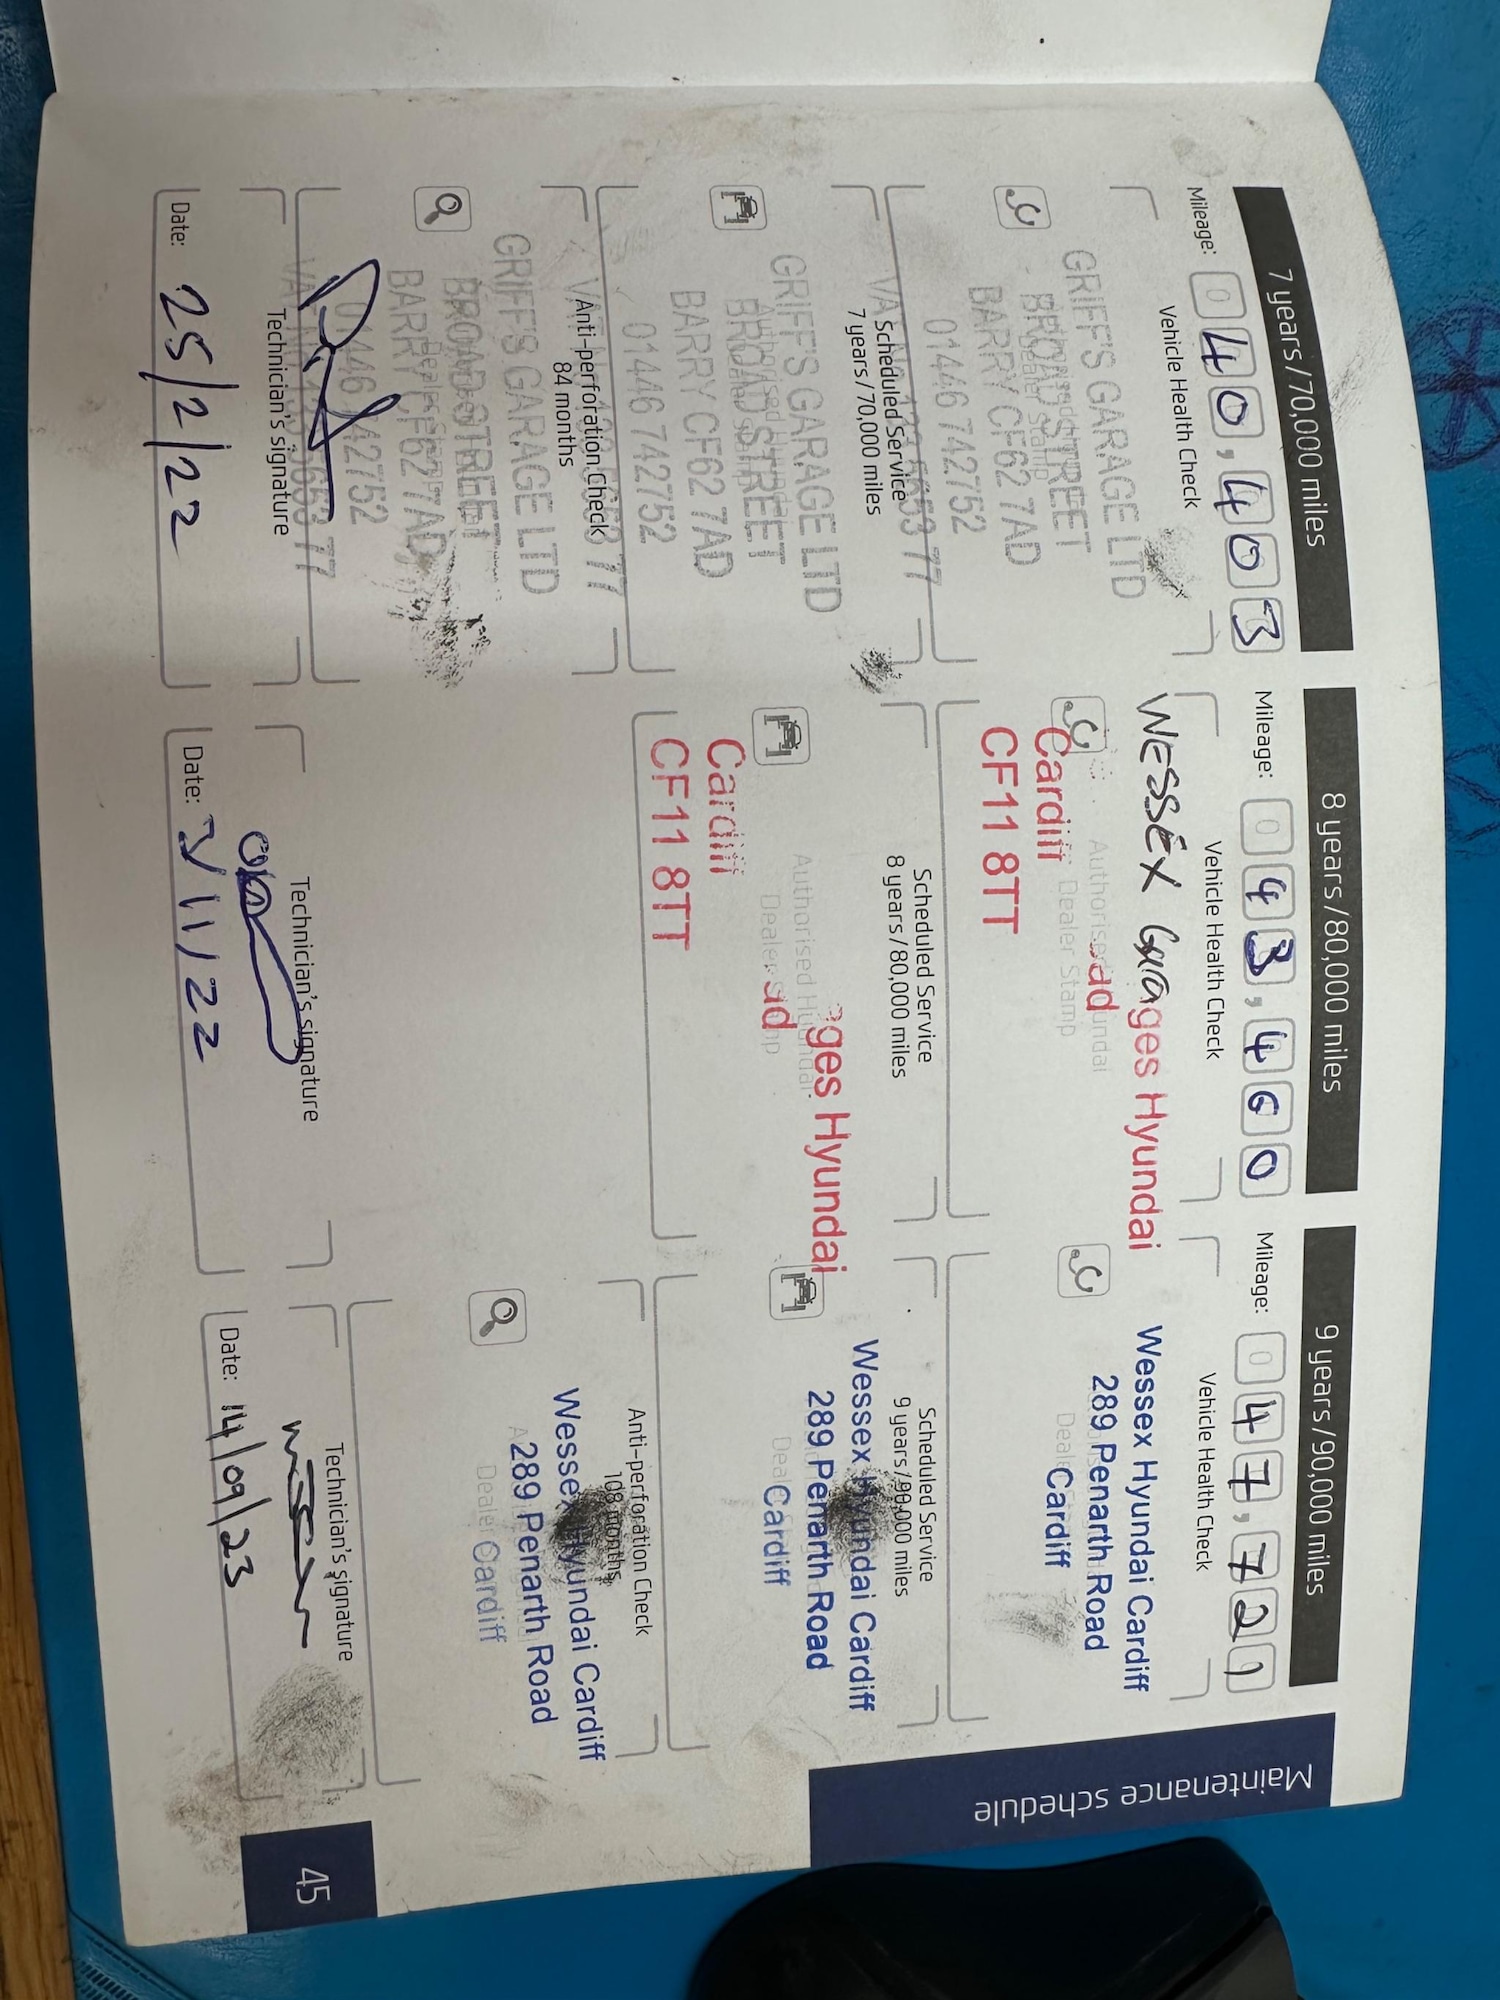 7 years/70,000 miles
Mileage: 0 4 0 , 4 0 3
Vehicle Health Check
GRIFF'S GARAGE LTD
BROAD STREET
BARRY CF62 7AD
01446 742752
Scheduled Service
7 years/70,000 miles
GRIFF'S GARAGE LTD
BROAD STREET
BARRY CF62 7AD
01446 742752
Anti-perforation Check
84 months
GRIFF'S GARAGE LTD
BROAD STREET
BARRY CF62 7AD
01446 742752
Technician's signature
Date: 25/2/22
8 years/80,000 miles
Mileage: 0 4 3 , 4 6 0
Vehicle Health Check
WESSEX Garages Hyundai
Authorised Hyundai
Dealer Stamp
Cardiff
CF11 8TT
Scheduled Service
8 years/80,000 miles
ges Hyundai
Authorised Hyundai
Cardiff
CF11 8TT
Technician's signature
Date: 3/11/22
9 years/90,000 miles
Mileage: 0 4 7 , 7 2 1
Vehicle Health Check
Wessex Hyundai Cardiff
289 Penarth Road
Cardiff
Scheduled Service
9 years/90,000 miles
Wessex Hyundai Cardiff
289 Penarth Road
Cardiff
Anti-perforation Check
108 months
Wessex Hyundai Cardiff
289 Penarth Road
Dealer Cardiff
Technician's signature
Date: 14/09/23
Maintenance schedule
45